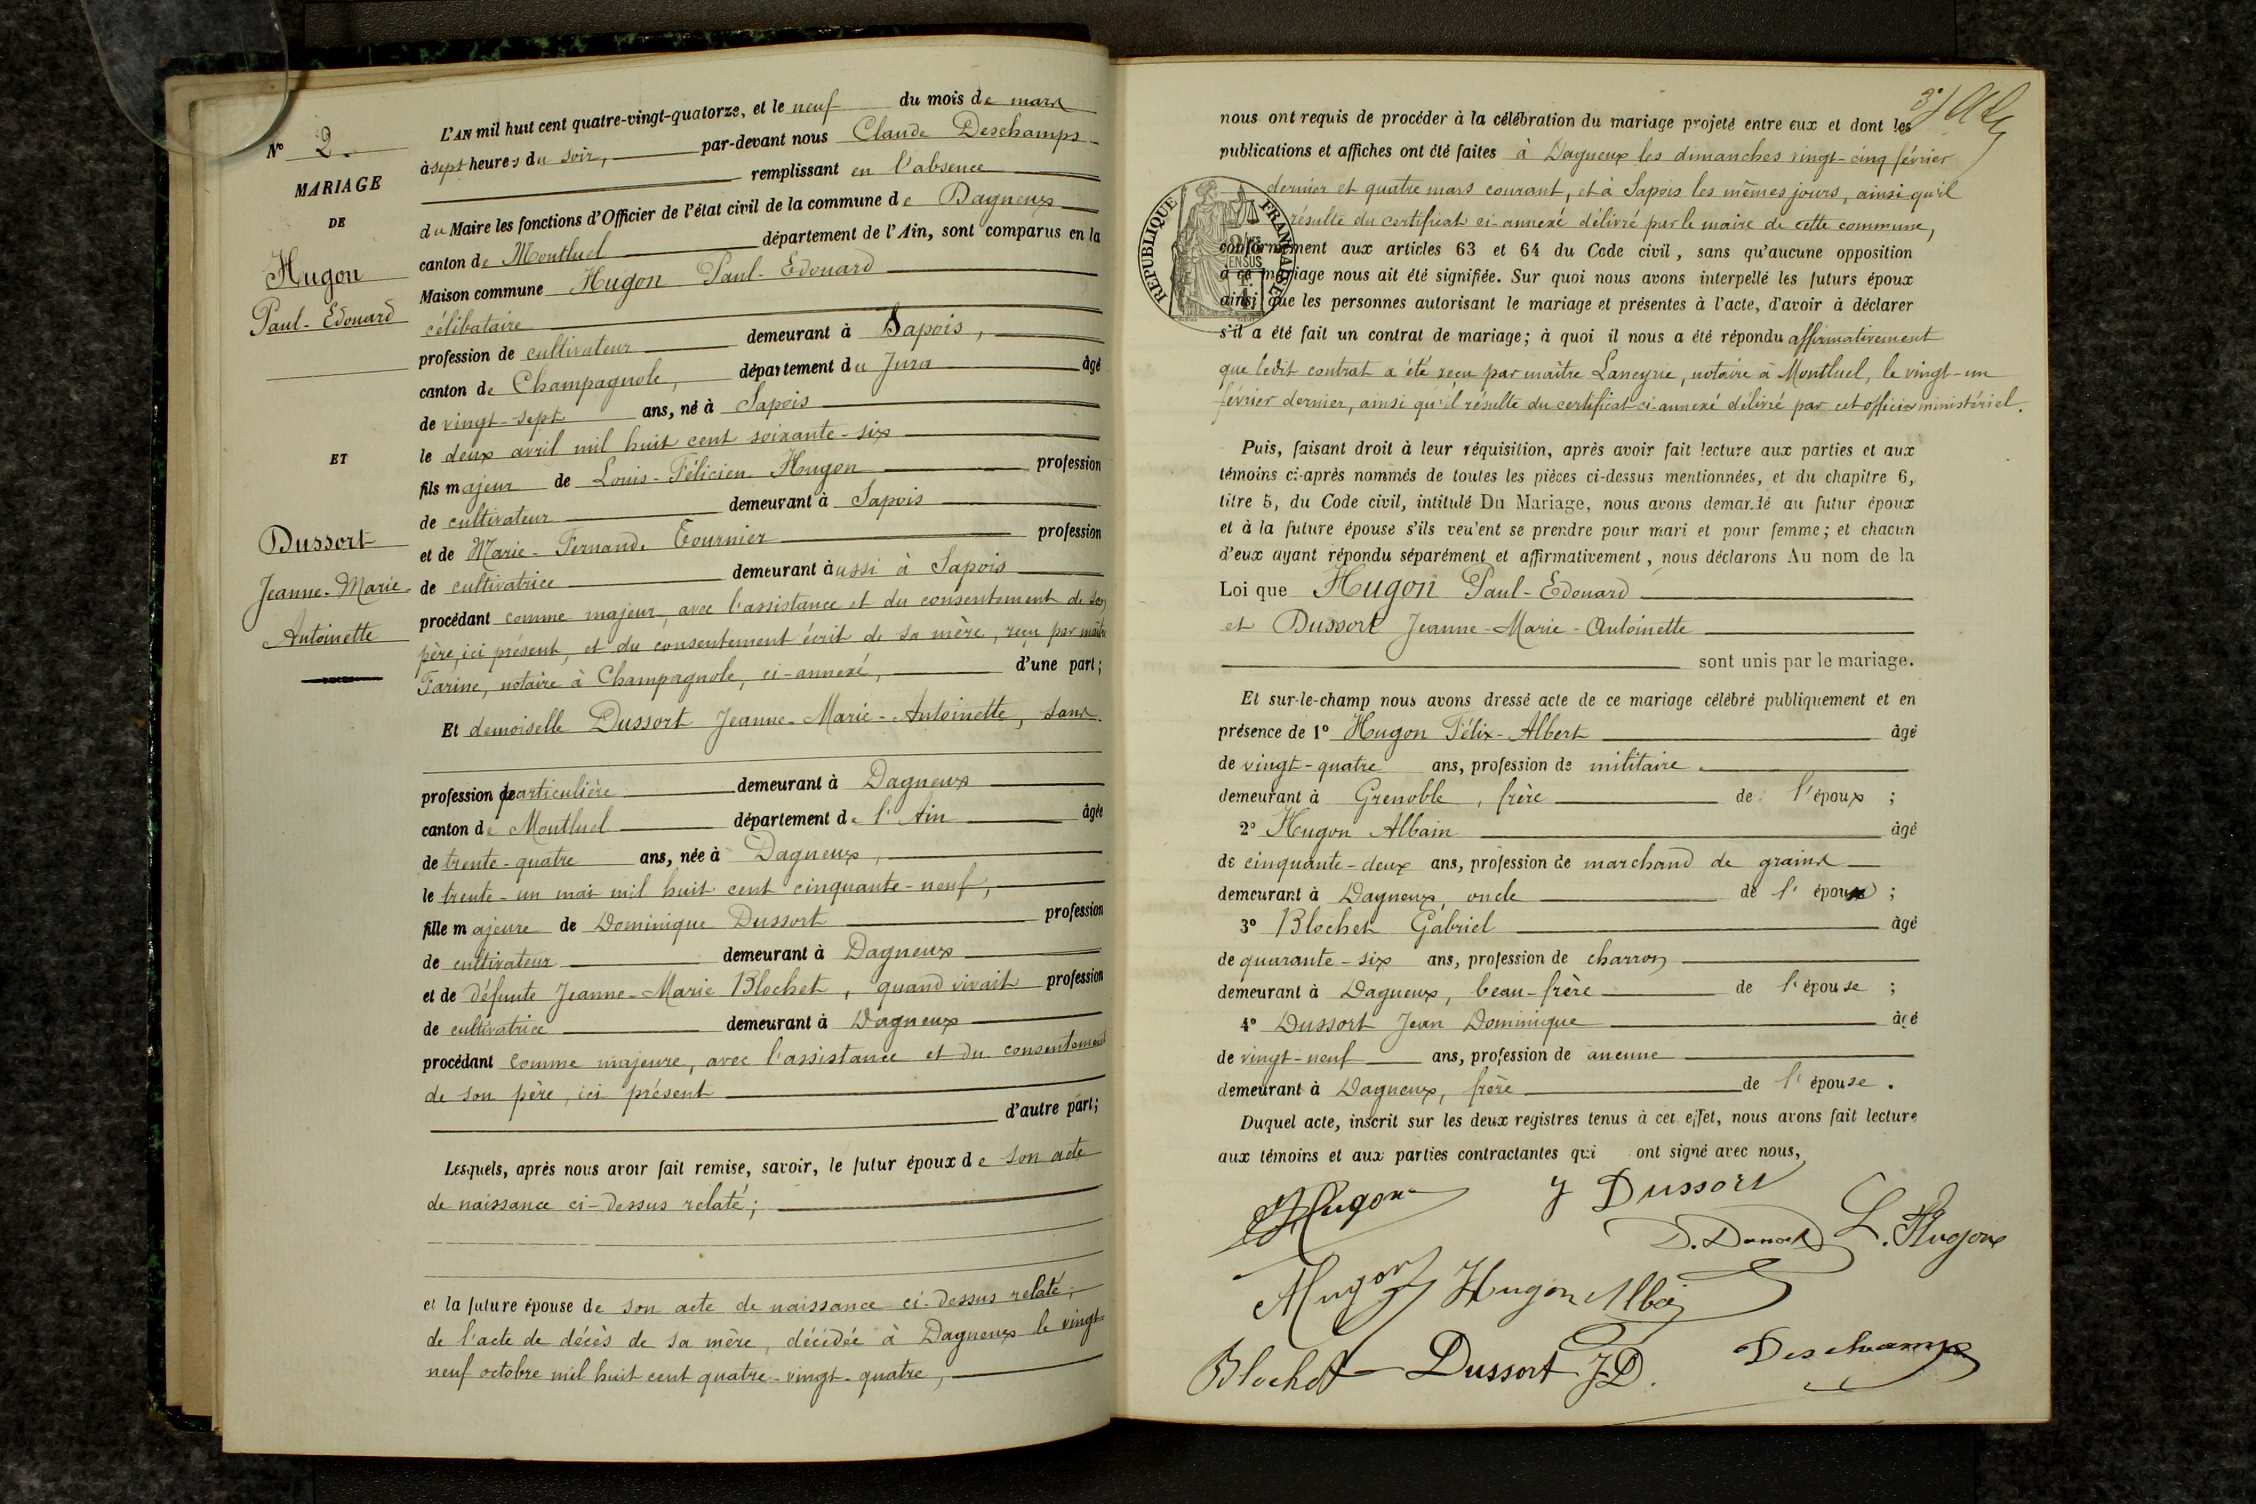 N° 2.
MARIAGE
DE
Hugon
Paul-Edouard
ET
Dussort
Jeanne-Marie-
Antoinette
L'AN mil huit cent quatre-vingt-quatorze, et le neuf du mois de mars
à sept heures du soir, par-devant nous Claude Deschamps
remplissant en l'absence
du Maire les fonctions d'Officier de l'état civil de la commune de Dagneux
canton de Montluel département de l'Ain, sont comparus en la
Maison commune Hugon Paul-Edouard
célibataire
profession de cultivateur demeurant à Sapois,
canton de Champagnole, département du Jura âgé
de vingt-sept ans, né à Sapois
le deux avril mil huit cent soixante-six
fils majeur de Louis-Félicien Hugon profession
de cultivateur demeurant à Sapois
et de Marie-Fernande Tournier profession
de cultivatrice demeurant aussi à Sapois
procédant comme majeur, avec l'assistance et du consentement de son
père, ici présent, et du consentement écrit de sa mère, reçu par maître
Farine, notaire à Champagnole, ci-annexé, d'une part;
Et demoiselle Dussort Jeanne-Marie-Antoinette, sans
profession particulière demeurant à Dagneux
canton de Montluel département de l'Ain âgée
de trente-quatre ans, née à Dagneux,
le trente-un mai mil huit cent cinquante-neuf,
fille majeure de Dominique Dussort profession
de cultivateur demeurant à Dagneux
et de défunte Jeanne-Marie Blochet, quand vivait profession
de cultivatrice demeurant à Dagneux
procédant comme majeure, avec l'assistance et du consentement
de son père, ici présent
d'autre part;
Lesquels, après nous avoir fait remise, savoir, le futur époux de son acte
de naissance ci-dessus relaté;
et la future épouse de son acte de naissance ci-dessus relaté;
de l'acte de décès de sa mère, décédée à Dagneux le vingt-
neuf octobre mil huit cent quatre-vingt-quatre,
nous ont requis de procéder à la célébration du mariage projeté entre eux et dont les
publications et affiches ont été faites à Dagneux les dimanches vingt-cinq février
dernier et quatre mars courant, et à Sapois les mêmes jours, ainsi qu'il
résulte du certificat ci-annexé délivré par le maire de cette commune,
RÉPUBLIQUE FRANÇAISE
conformément aux articles 63 et 64 du Code civil, sans qu'aucune opposition
à ce mariage nous ait été signifiée. Sur quoi nous avons interpellé les futurs époux
ainsi que les personnes autorisant le mariage et présentes à l'acte, d'avoir à déclarer
s'il a été fait un contrat de mariage; à quoi il nous a été répondu affirmativement
que ledit contrat a été reçu par maître Laneyrie, notaire à Montluel, le vingt-un
février dernier, ainsi qu'il résulte du certificat ci-annexé délivré par cet officier ministériel.
Puis, faisant droit à leur réquisition, après avoir fait lecture aux parties et aux
témoins ci-après nommés de toutes les pièces ci-dessus mentionnées, et du chapitre 6,
titre 5, du Code civil, intitulé Du Mariage, nous avons demandé au futur époux
et à la future épouse s'ils veulent se prendre pour mari et pour femme; et chacun
d'eux ayant répondu séparément et affirmativement, nous déclarons Au nom de la
Loi que Hugon Paul-Edouard
et Dussort Jeanne-Marie-Antoinette
sont unis par le mariage.
Et sur-le-champ nous avons dressé acte de ce mariage célébré publiquement et en
présence de 1° Hugon Félix-Albert âgé
de vingt-quatre ans, profession de militaire
demeurant à Grenoble, frère de l'époux;
2° Hugon Albain âgé
de cinquante-deux ans, profession de marchand de grains
demeurant à Dagneux, oncle de l'époux;
3° Blochet Gabriel âgé
de quarante-six ans, profession de charron
demeurant à Dagneux, beau-frère de l'épouse;
4° Dussort Jean Dominique âgé
de vingt-neuf ans, profession de aucune
demeurant à Dagneux, frère de l'épouse.
Duquel acte, inscrit sur les deux registres tenus à cet effet, nous avons fait lecture
aux témoins et aux parties contractantes qui ont signé avec nous,
Hugon J Dussort
L. Hugon
Hugon Hugon Albin
Blochet Dussort J D. Deschamps